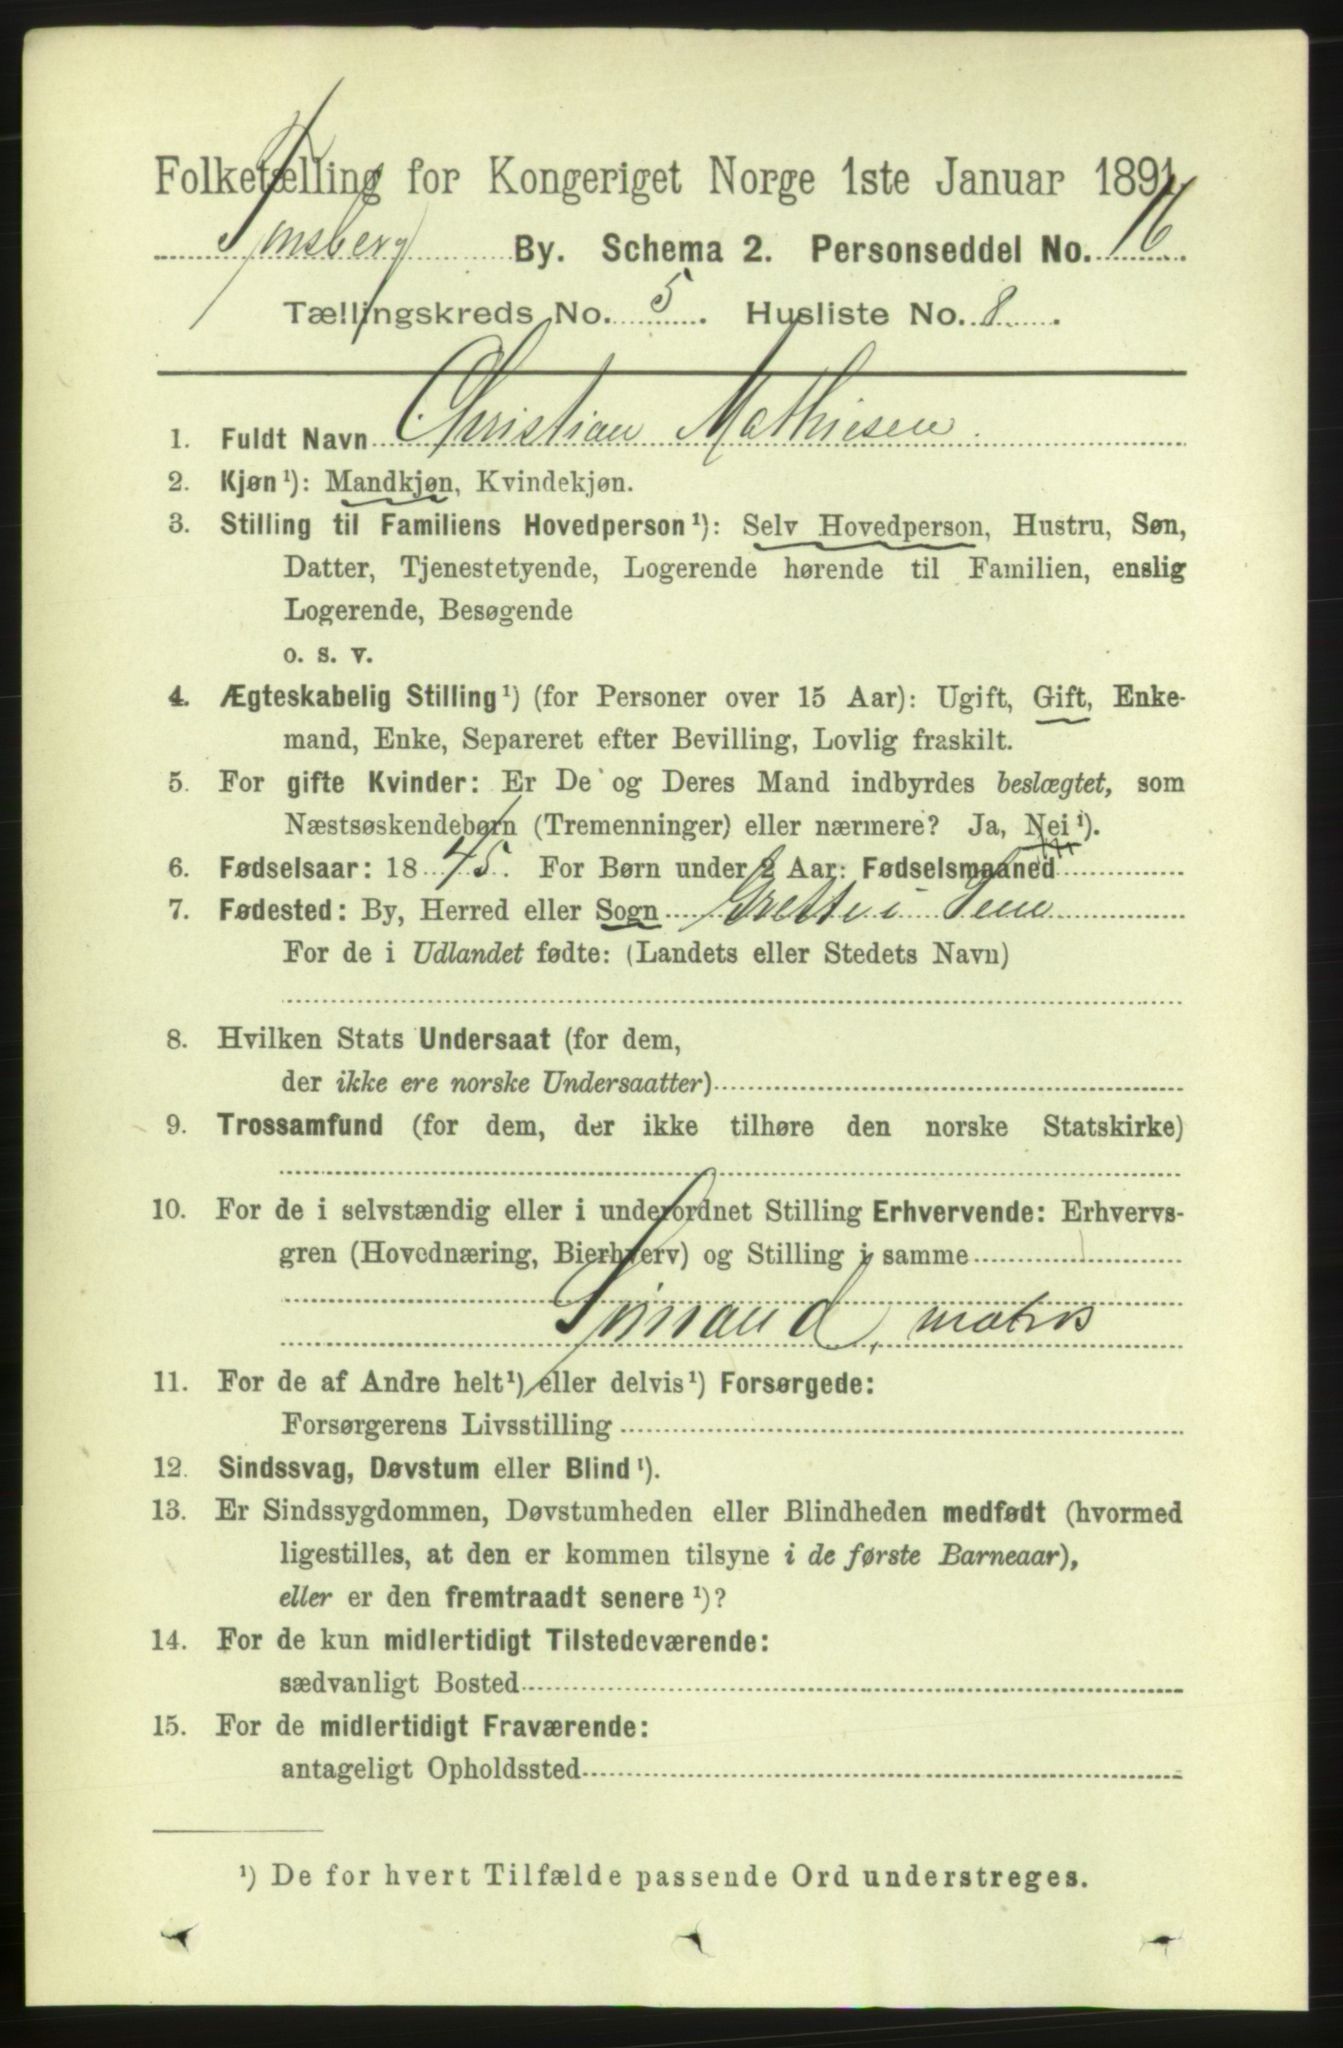 Folketælling for Kongeriget Norge 1ste Januar 1891.
Tønsberg By. Schema 2. Personseddel No. 16.
Tællingskreds No. 5. Husliste No. 8.
1. Fuldt Navn Christian Mathiesen.
2. Kjøn¹): Mandkjøn, Kvindekjøn.
3. Stilling til Familiens Hovedperson¹): Selv Hovedperson, Hustru, Søn,
Datter, Tjenestetyende, Logerende hørende til Familien, enslig
Logerende, Besøgende
o. s. v.
4. Ægteskabelig Stilling¹) (for Personer over 15 Aar): Ugift, Gift, Enke-
mand, Enke, Separeret efter Bevilling, Lovlig fraskilt.
5. For gifte Kvinder: Er De og Deres Mand indbyrdes beslægtet, som
Næstsøskendebørn (Tremenninger) eller nærmere? Ja, Nei¹).
6. Fødselsaar: 1845. For Børn under 2 Aar: Fødselsmaaned
7. Fødested: By, Herred eller Sogn Grette i Sem
For de i Udlandet fødte: (Landets eller Stedets Navn)
8. Hvilken Stats Undersaat (for dem,
der ikke ere norske Undersaatter)
9. Trossamfund (for dem, der ikke tilhøre den norske Statskirke)
10. For de i selvstændig eller i underordnet Stilling Erhvervende: Erhvervs-
gren (Hovednæring, Bierhverv) og Stilling i samme
Sømand, matros
11. For de af Andre helt¹) eller delvis¹) Forsørgede:
Forsørgerens Livsstilling
12. Sindssvag, Døvstum eller Blind¹).
13. Er Sindssygdommen, Døvstumheden eller Blindheden medfødt (hvormed
ligestilles, at den er kommen tilsyne i de første Barneaar),
eller er den fremtraadt senere¹)?
14. For de kun midlertidigt Tilstedeværende:
sædvanligt Bosted
15. For de midlertidigt Fraværende:
antageligt Opholdssted
¹) De for hvert Tilfælde passende Ord understreges.